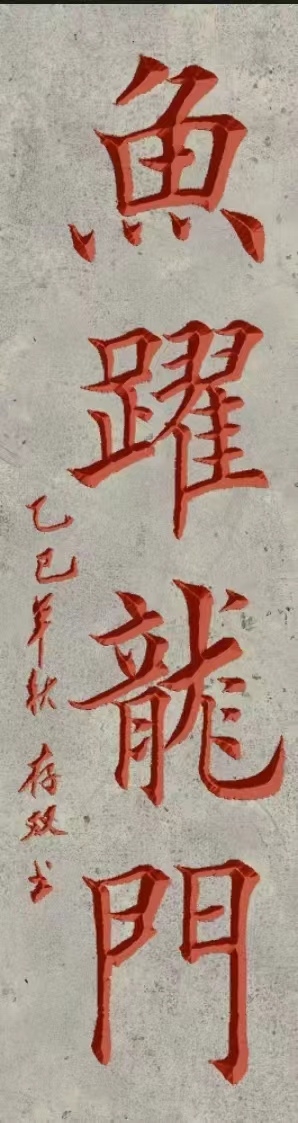 魚躍龍門
乙巳年秋 存双书